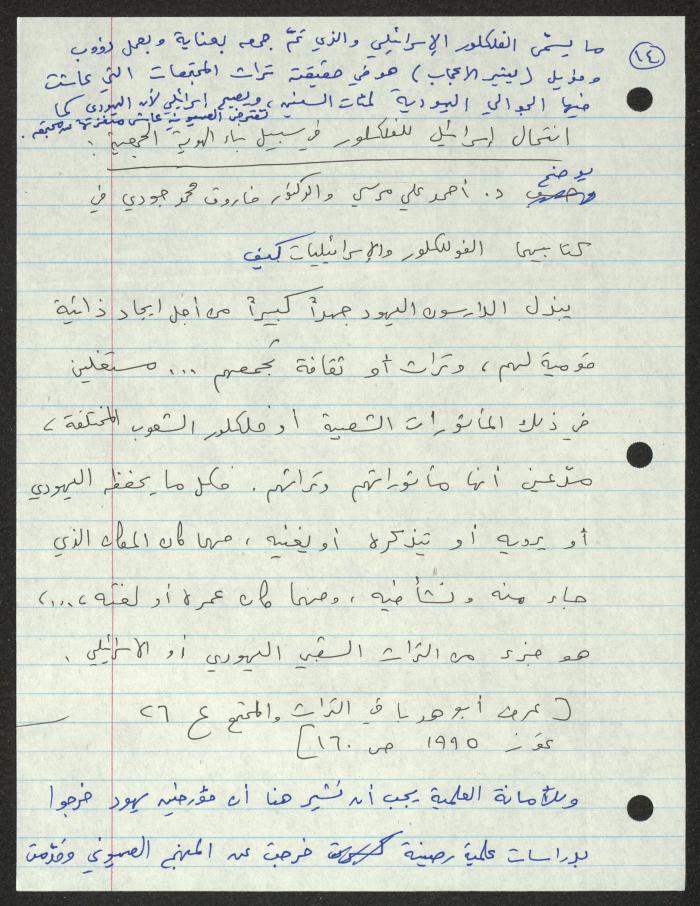 ١٤
ما يسمّى الفلكلور الإسرائيلي والذي تمّ جمعه بعناية وبعمل دؤوب
ومذيل (يثير الاعجاب) هو في حقيقته تراث المجتمعات التي عاشت
فيها الجوالي اليهودية لمئات السنين، ويصبح إسرائيلي لأن اليهودي كما
تفترض الصهيونية عاش منعزلا عن محيطه.
انتحال إسرائيل للفلكلور في سبيل بناء الهوية الجمعية:
يوضح
د. أحمد علي مرسي والدكتور فاروق محمد جودي في
كتابيهما الفولكلور والإسرائيليات كيف
يبذل الدارسون اليهود جهداً كبيراً من أجل ايجاد ذاتية
قومية لهم، وتراث أو ثقافة تجمعهم ... مستغلين
في ذلك المأثورات الشعبية أو فلكلور الشعوب المختلفة،
مدّعين أنها مأثوراتهم وتراثهم. فكل ما يحفظه اليهودي
أو يرويه أو يتذكره أو يغنيه، مهما كان المكان الذي
جاء منه ونشأ فيه، ومهما كان عمره أو لغته،...،
هو جزء من التراث الشعبي اليهودي أو الاسرائيلي.
[عمرو أبو هدبا في التراث والمجتمع ع ٢٦
تموز ١٩٩٥ ص ١٦٠]
وللأمانة العلمية يجب أن نشير هنا أن مؤرخين يهود خرجوا
بدراسات علمية رصينة خرجت عن المنهج الصهيوني وقدّمت